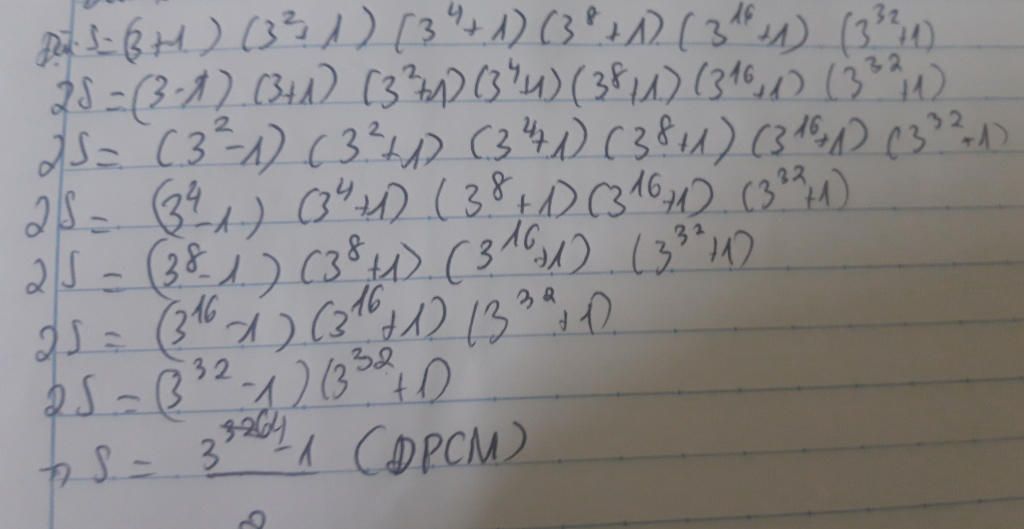 S = (3+1) (3²+1) (3⁴+1) (3⁸+1) (3¹⁶+1) (3³²+1)
2S = (3-1) (3+1) (3²+1) (3⁴+1) (3⁸+1) (3¹⁶+1) (3³²+1)
2S = (3²-1) (3²+1) (3⁴+1) (3⁸+1) (3¹⁶+1) (3³²+1)
2S = (3⁴-1) (3⁴+1) (3⁸+1) (3¹⁶+1) (3³²+1)
2S = (3⁸-1) (3⁸+1) (3¹⁶+1) (3³²+1)
2S = (3¹⁶-1) (3¹⁶+1) (3³²+1)
2S = (3³²-1) (3³²+1)
S = 3⁶⁴-1 (ĐPCM)
2